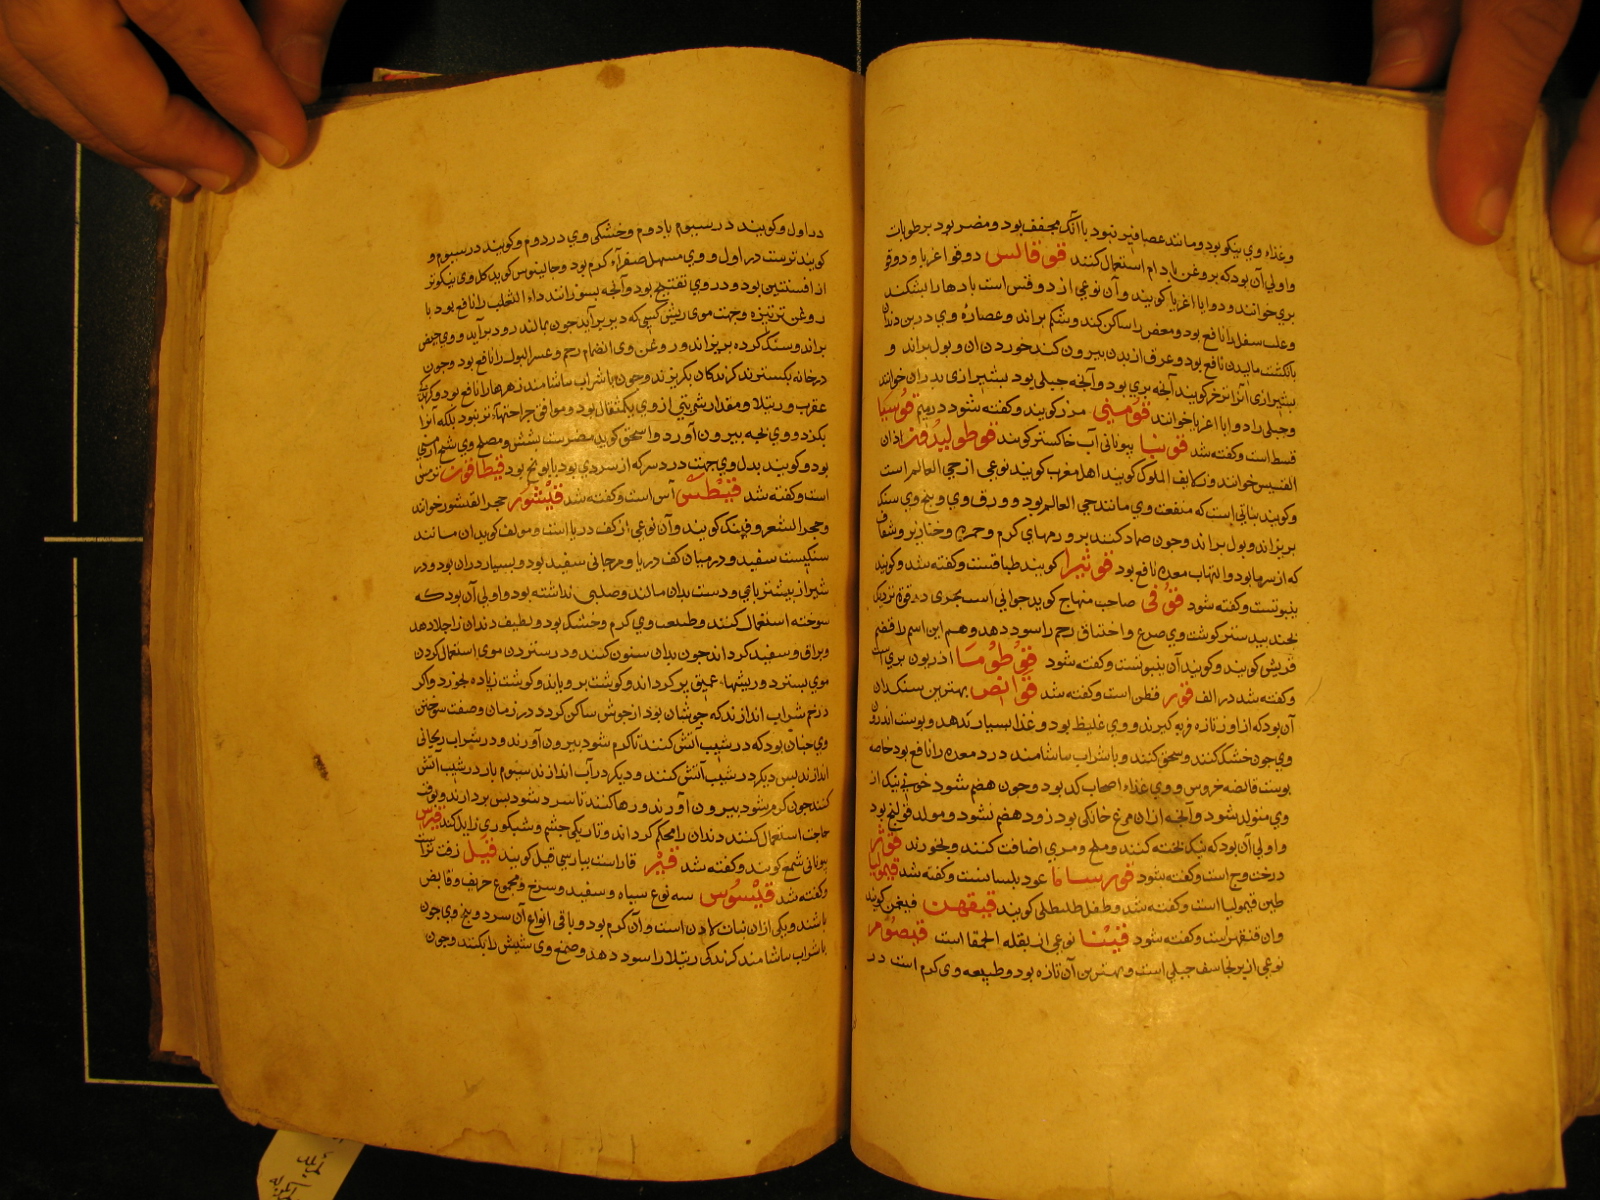 وغذاء وي نیکو بود ومانند عصافیر نبود با آنک مجفف بود ومضر بود برطوبات
واولی آن بود که بروغن بادام استعمال کنند قوقالس دوقوا غریا ودوقو
بری خوانند ودوایا اغریا کویند وآن نوعی از دوقس است بادها را بشکند
وعلت سفل را نافع بود ومغص را ساکن کند وشکم براند وعصارۀ وي در بن دندان
بانکشت مالیدن نافع بود وعرق از بدن بیرون کند خوردن آن وبول براند و
بشیرازی آنرا کویند آنجه بری بود وآنجه جبلی بود بشیرازی بدران خوانند
وجبلی را دوایا اغریا خوانند قومینی مرز کویند وکفته شود در میم قوسیا
قسط است وکفته شد قونیا بیونانی آب خاکستر کویند قوطولیدون اذان
القسیس خوانند وزلایف الملوک کویند اهل مغرب کویند نوعی از حی العالم است
وکویند نباتی است که منفعت وی مانند حی العالم بود وورق وي وبیخ وی سنک
بریزاند وبول براند وجون ضماد کنند بر ورمهای کرم وحمره وخنازیر وشقاق
که از سرما بود والتهاب معده نافع بود قوثیرا کویند طباقست وکفته شد وکویند
ینبوتست وکفته شود قوقی صاحب منهاج کوید حیوانی است بحری
قریش کویند وکویند آن ینبوتست وکفته شود قوطوما اذریون بری است
وکفته شد در الف قور قطن است وکفته شد قوانص بهترین سنکدان
آن بود که از اوز تازه فربه کیرند ووی غلیظ بود وغذا بسیار دهد وپوست اندرون
وي جون خشک کنند وسحق کنند وبا شراب بیاشامند درد معده را نافع بود خاصه
پوست قانصه خروس ووی غذاء اصحاب کد بود وجون هضم شود خونی نیک از
وي متولد شود وآنجه از آن مرغ خانکی بود زود هضم نشود ومولد قولنج بود
واولی آن بود که نیک پخته کنند وملح ومری اضافت کنند وبخورند قوثر
درخت وج است وکفته شود قورساما عود بلسانست وکفته شد قیمولیا
طین قیمولیا است وکفته شد وطفل طلیطلی کویند قیقهن قیغن کویند
وآن قنقهر است وکفته شود قینا نوعی از بقله الحمقا است قیصوم
نوعی از برنجاسف جبلی است وبهترین آن تازه بود وطبیعه وی کرم است در
در اول وکویند در سیوم یا دوم وخشکی وي در دوم وکویند در سیوم و
کویند ترست در اول ووي مسهل صفراء کرم بود وجالینوس کوید کل وی نیکوتر
از افسنتین بود ودر وي تفتیح بود وآنجه بسوزانند داء الثعلب را نافع بود با
روغن ترب وجهت موی ریش کسی که دیر برآید جون بمالند زود برآید ووي حیض
براند وسنک کرده بریزاند وروغن وی انضمام رحم وعسر البول را نافع بود وجون
در خانه بکسترند کزندکان بکریزند وجون با شراب بیاشامند زهرها را نافع بود
عقرب ورتیلا ومقدار شربتی از وي یکمثقال بود وموافق جراحتها تر نبود بلکه آنرا
بکزد ووي بیرون آورد واسحق کوید مضرست بشش ومصلح وي شیح ارمنی
بود وکویند بدل وي جهت درد سر که از سردي بود بابونج بود قیطافون ترمس
است وکفته شد قیطس آس است وکفته شد قیشور حجر القیشور خوانند
وحجر الشعر وفینک کویند وآن نوعی از کف دریا است ومولف کوید آن مانند
سنکیست سفید ودر میان کف دریا ومرجانی سفید بود وبسیار در آن بود ودر
شیراز بیشتر پاي ودست بدان مالند وصلبی نداشته بود واولی آن بود که
سوخته استعمال کنند وطبیعت وي کرم وخشک بود ولطیف دندان را جلا دهد
وبراق وسفید کرداند جون بدان سنون کنند ودر ستردن موي استعمال کردن
موي بسترد وریشهاء عمیق پر کرداند وکوشت برویاند وکوشت زیاده بخورد واکر
در خم شراب اندازند که جوشان بود از جوش ساکن کردد در زمان وصفت سوختن
وي جنان بود که در شیب آتش کنند تا کرم شود بیرون آورند ودر شراب ریحانی
اندازند پس دیکر در شیب آتش کنند ودیکر در آب اندازند سیوم بار در شیب آتش
کنند جون کرم شود بیرون آورند ورها کنند تا سرد شود پس بردارند وبوقت
حاجت استعمال کنند دندان را محکم کرداند وتاریکی جشم وشبکوري زایل کند قیرس
بیونانی شمع کویند وکفته شد قیر قار است بپارسی قیل کویند قیل زفت تر است
وکفته شد قیسوس سه نوع سیاه وسفید وسرخ ومجموع حریف وقابض
باشند ویکی از آن نبات لادن است وآن کرم بود وباقی انواع آن سرد وبیخ وي جون
با شراب بیاشامند کزندکی رتیلا را سود دهد وصمغ وی شپش را بکشد وجون